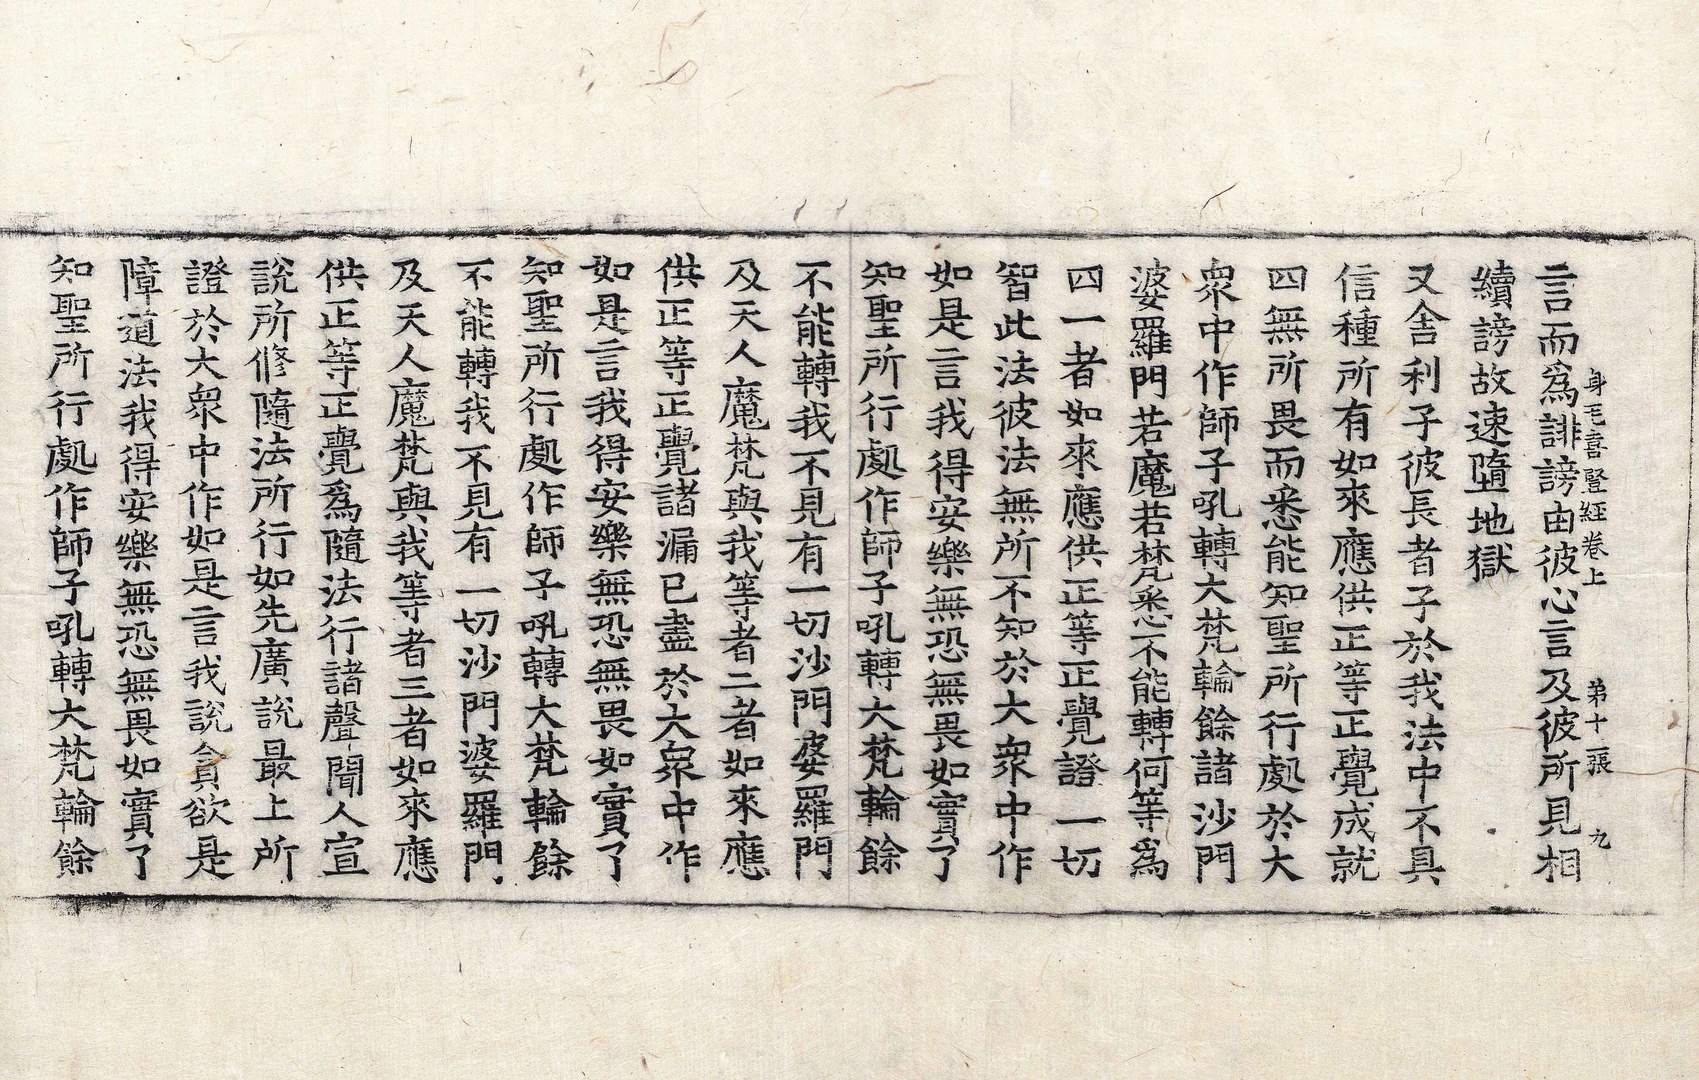 身毛喜豎経卷上 第十二張 九
言而爲誹謗由彼心言及彼所見相
續謗故速墮地獄
又舍利子彼長者子於我法中不具
信種所有如來應供正等正覺成就
四無所畏而悉能知聖所行處於大
衆中作師子吼轉大梵輪餘諸沙門
婆羅門若魔若梵悉不能轉何等爲
四一者如來應供正等正覺證一切
智此法彼法無所不知於大衆中作
如是言我得安樂無恐無畏如實了
知聖所行處作師子吼轉大梵輪餘
不能轉我不見有一切沙門婆羅門
及天人魔梵與我等者二者如來應
供正等正覺諸漏已盡於大衆中作
如是言我得安樂無恐無畏如實了
知聖所行處作師子吼轉大梵輪餘
不能轉我不見有一切沙門婆羅門
及天人魔梵與我等者三者如來應
供正等正覺爲隨法行諸聲聞人宣
說所修隨法所行如先廣說最上所
證於大衆中作如是言我說貪欲是
障道法我得安樂無恐無畏如實了
知聖所行處作師子吼轉大梵輪餘